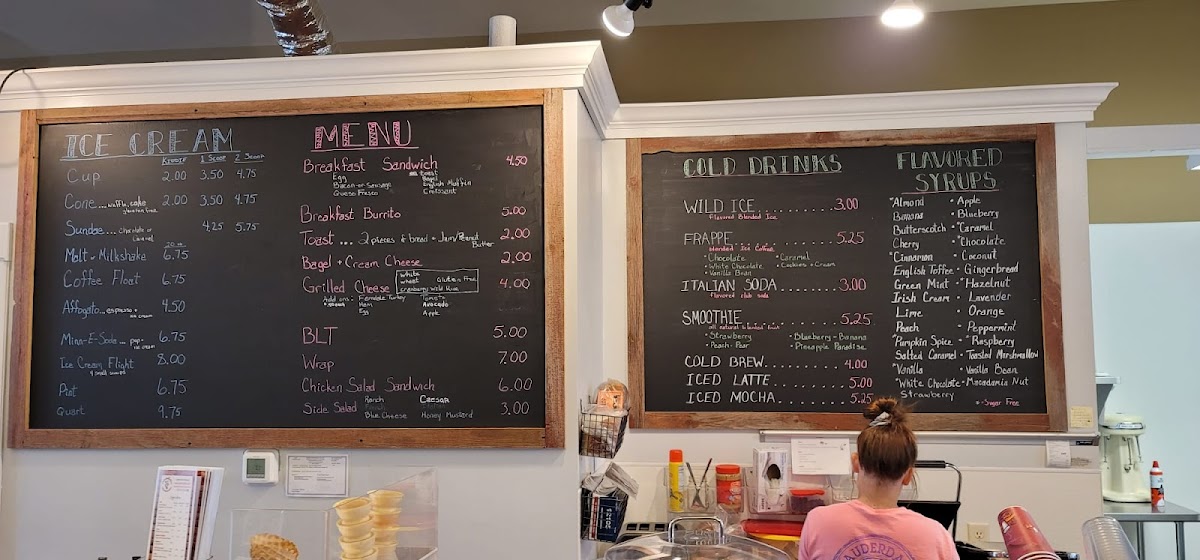 ICE CREAM
Kiddie 1 Scoop 2 Scoop
Cup 2.00 3.50 4.75
Cone ... waffle, cake 2.00 3.50 4.75
gluten free
Sundae ... chocolate or 4.25 5.75
caramel
20 oz
Malt - Milkshake 6.75
Coffee Float 6.75
Affogato ... espresso + 4.50
ice cream
Minn-E-Soda ... pop + 6.75
ice cream
Ice Cream Flight 8.00
4 small scoops
Pint 6.75
Quart 9.75
MENU
Breakfast Sandwich 4.50
Egg Toast
Bacon or Sausage Bagel
Queso Fresco English Muffin
Croissant
Breakfast Burrito 5.00
Toast ... 2 pieces of bread + Jam/Peanut 2.00
Butter
Bagel + Cream Cheese 2.00
Grilled Cheese 4.00
White
Wheat Gluten Free
Cranberry Wild Rice
Add ons: Ferndale Turkey Tomato
Ham Avocado
Egg Apple
BLT 5.00
Wrap 7.00
Chicken Salad Sandwich 6.00
Side Salad 3.00
Ranch Caesar
French
Blue Cheese Honey Mustard
COLD DRINKS
WILD ICE .......... 3.00
Flavored Blended Ice
FRAPPE .......... 5.25
blended Ice Coffee
• Chocolate • Caramel
• White Chocolate • Cookies + Cream
• Vanilla Bean
ITALIAN SODA .......... 3.00
flavored club soda
SMOOTHIE .......... 5.25
all natural blended fruit
• Strawberry • Blueberry - Banana
• Peach - Pear • Pineapple Paradise
COLD BREW .......... 4.00
ICED LATTE .......... 5.00
ICED MOCHA .......... 5.25
FLAVORED
SYRUPS
*Almond • Apple
Banana • Blueberry
Butterscotch • *Caramel
Cherry • *Chocolate
*Cinnamon • Coconut
English Toffee • Gingerbread
Green Mint • *Hazelnut
Irish Cream • Lavender
Lime • Orange
Peach • Peppermint
*Pumpkin Spice • *Raspberry
Salted Caramel • Toasted Marshmallow
*Vanilla • Vanilla Bean
*White Chocolate • Macadamia Nut
Strawberry
* - Sugar Free